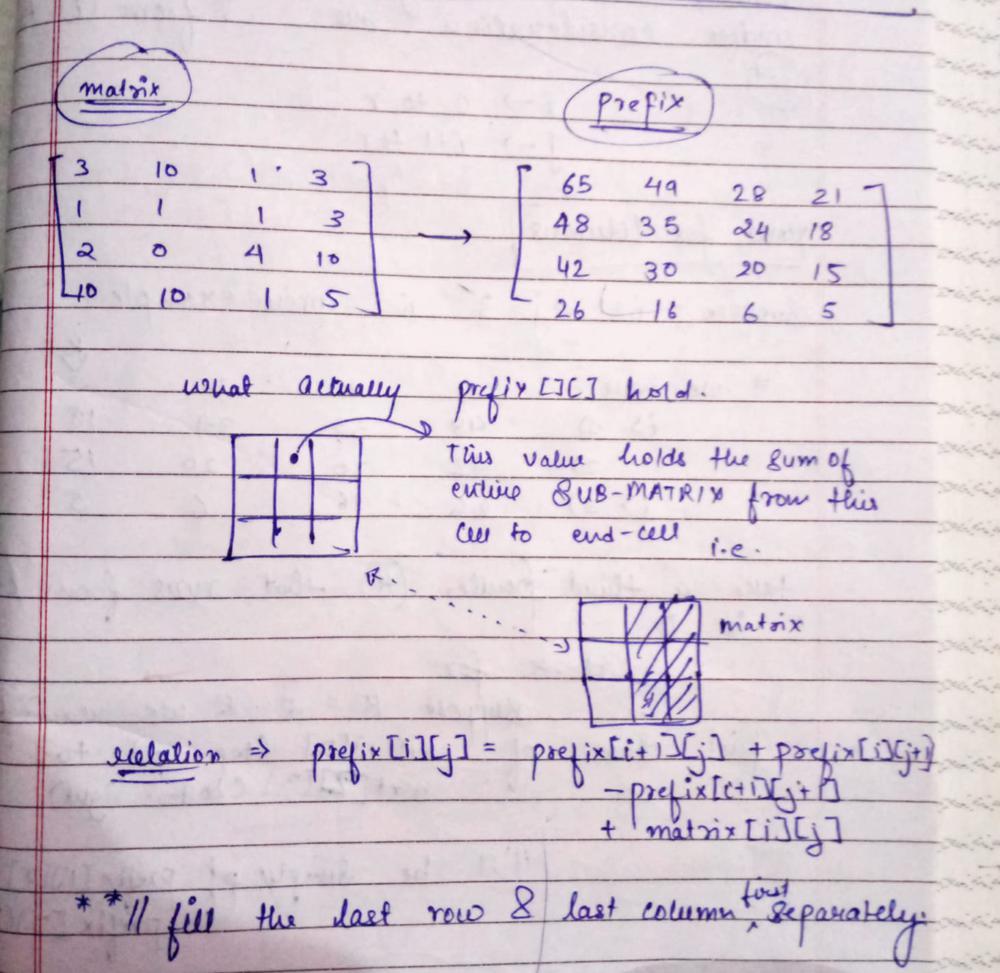 matrix
prefix
3 10 1 3
1 1 1 3
2 0 4 10
10 10 1 5
→
65 49 28 21
48 35 24 18
42 30 20 15
26 16 6 5
what actually prefix[][] hold.
This value holds the sum of
entire SUB-MATRIX from this
cell to end-cell i.e.
matrix
relation ⇒ prefix[i][j] = prefix[i+1][j] + prefix[i][j+1]
- prefix[i+1][j+1]
+ matrix[i][j]
** // fill the last row & last column first separately.